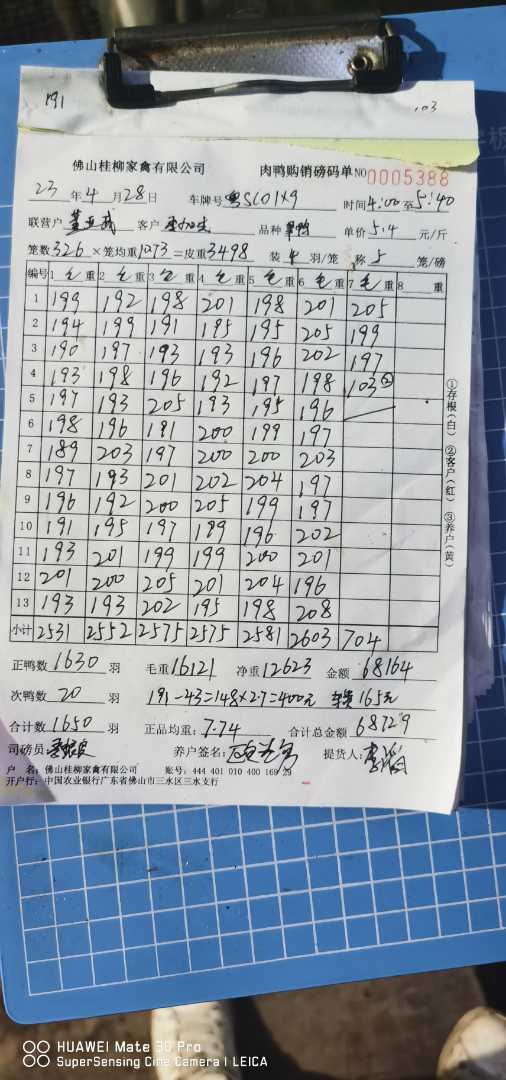 191 103
佛山桂柳家禽有限公司 肉鸭购销磅码单 NO 0005388
23 年 4 月 28 日 车牌号 粤SC01X9 时间 4:00 至 5:40
联营户 客户 品种 单价 5.4 元/斤
笼数 326 × 笼均重 10.73 = 皮重 3498 装 4 羽/笼 称 5 笼/磅
编号 1 毛 重 2 毛 重 3 毛 重 4 毛 重 5 毛 重 6 毛 重 7 毛 重 8 重
1 199 192 198 201 198 201 205
2 194 199 191 195 195 205 199
3 190 197 193 193 196 202 197
4 193 198 196 192 197 198 103②
5 197 193 205 193 195 196
6 198 196 191 200 199 197
7 189 203 197 200 200 203
8 197 193 201 202 204 197
9 196 192 200 205 199 197
10 191 195 197 199 196 202
11 193 201 199 199 200 201
12 201 200 205 201 204 196
13 193 193 202 195 198 208
小计 2531 2552 2575 2575 2581 2603 704
①存根(白) ②客户(红) ③养户(黄)
正鸭数 1630 羽 毛重 16121 净重 12623 金额 68164
次鸭数 20 羽 191-43=148×2.7=400元 165元
合计数 1650 羽 正品均重: 7.74 合计总金额 68729
司磅员: 养户签名: 提货人:
户 名: 佛山桂柳家禽有限公司 账号: 444 401 010 400 169 29
开户行: 中国农业银行广东省佛山市三水区三水支行
HUAWEI Mate 30 Pro
SuperSensing Cine Camera | LEICA